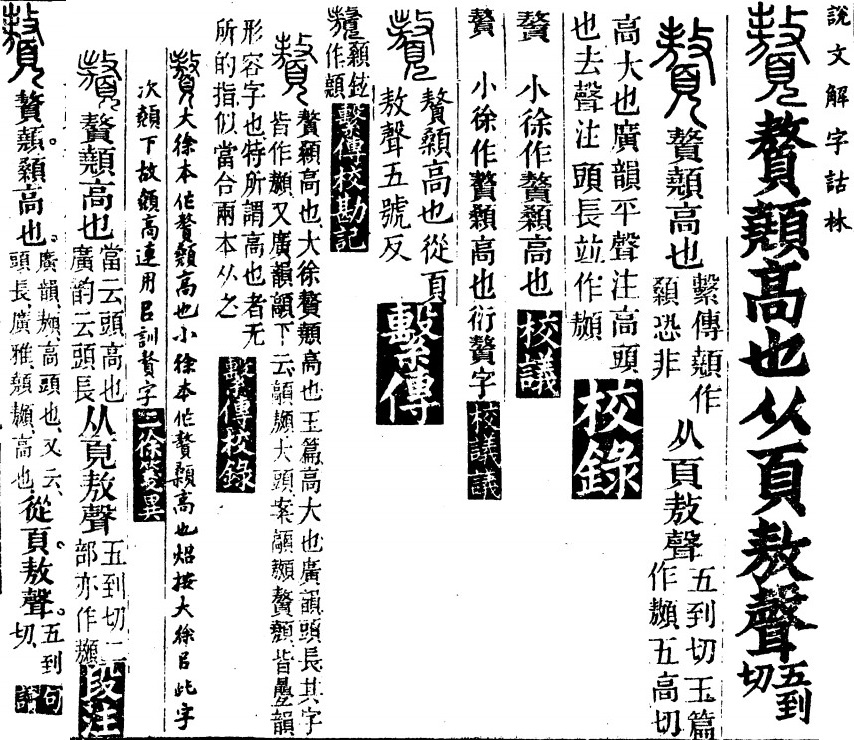 說文解字詁林
贅顤高也从頁敖聲五到切
贅顤高也繫傳顤作顡恐非从頁敖聲五到切玉篇作五高切
高大也廣韻平聲注高頭也去聲注頭長竝作 校錄
贅 小徐作贅顡高也 校議
贅 小徐作贅顡高也衍贅字 校議議
贅顡高也從頁敖聲五號反 繫傳
顡鉉作顤 繫傳校勘記
贅顡高也大徐贅顤高也玉篇高大也廣韻頭長其字皆作 又廣韻 下云 大頭案 贅顤皆疊韻
形容字也特所謂高也者无所的指似當合兩本从之 繫傳校錄
大徐本作贅顤高也小徐本作贅顡高也炤按大徐㠯此字
次顤下故顤高連用㠯訓贅字 二徐箋異
贅顤高也當云頭高也廣韵云頭長从頁敖聲五到切二部亦作 段注
贅顤顤高也廣韻 高頭也又云頭長廣雅顤 高也從頁敖聲五到切 句讀